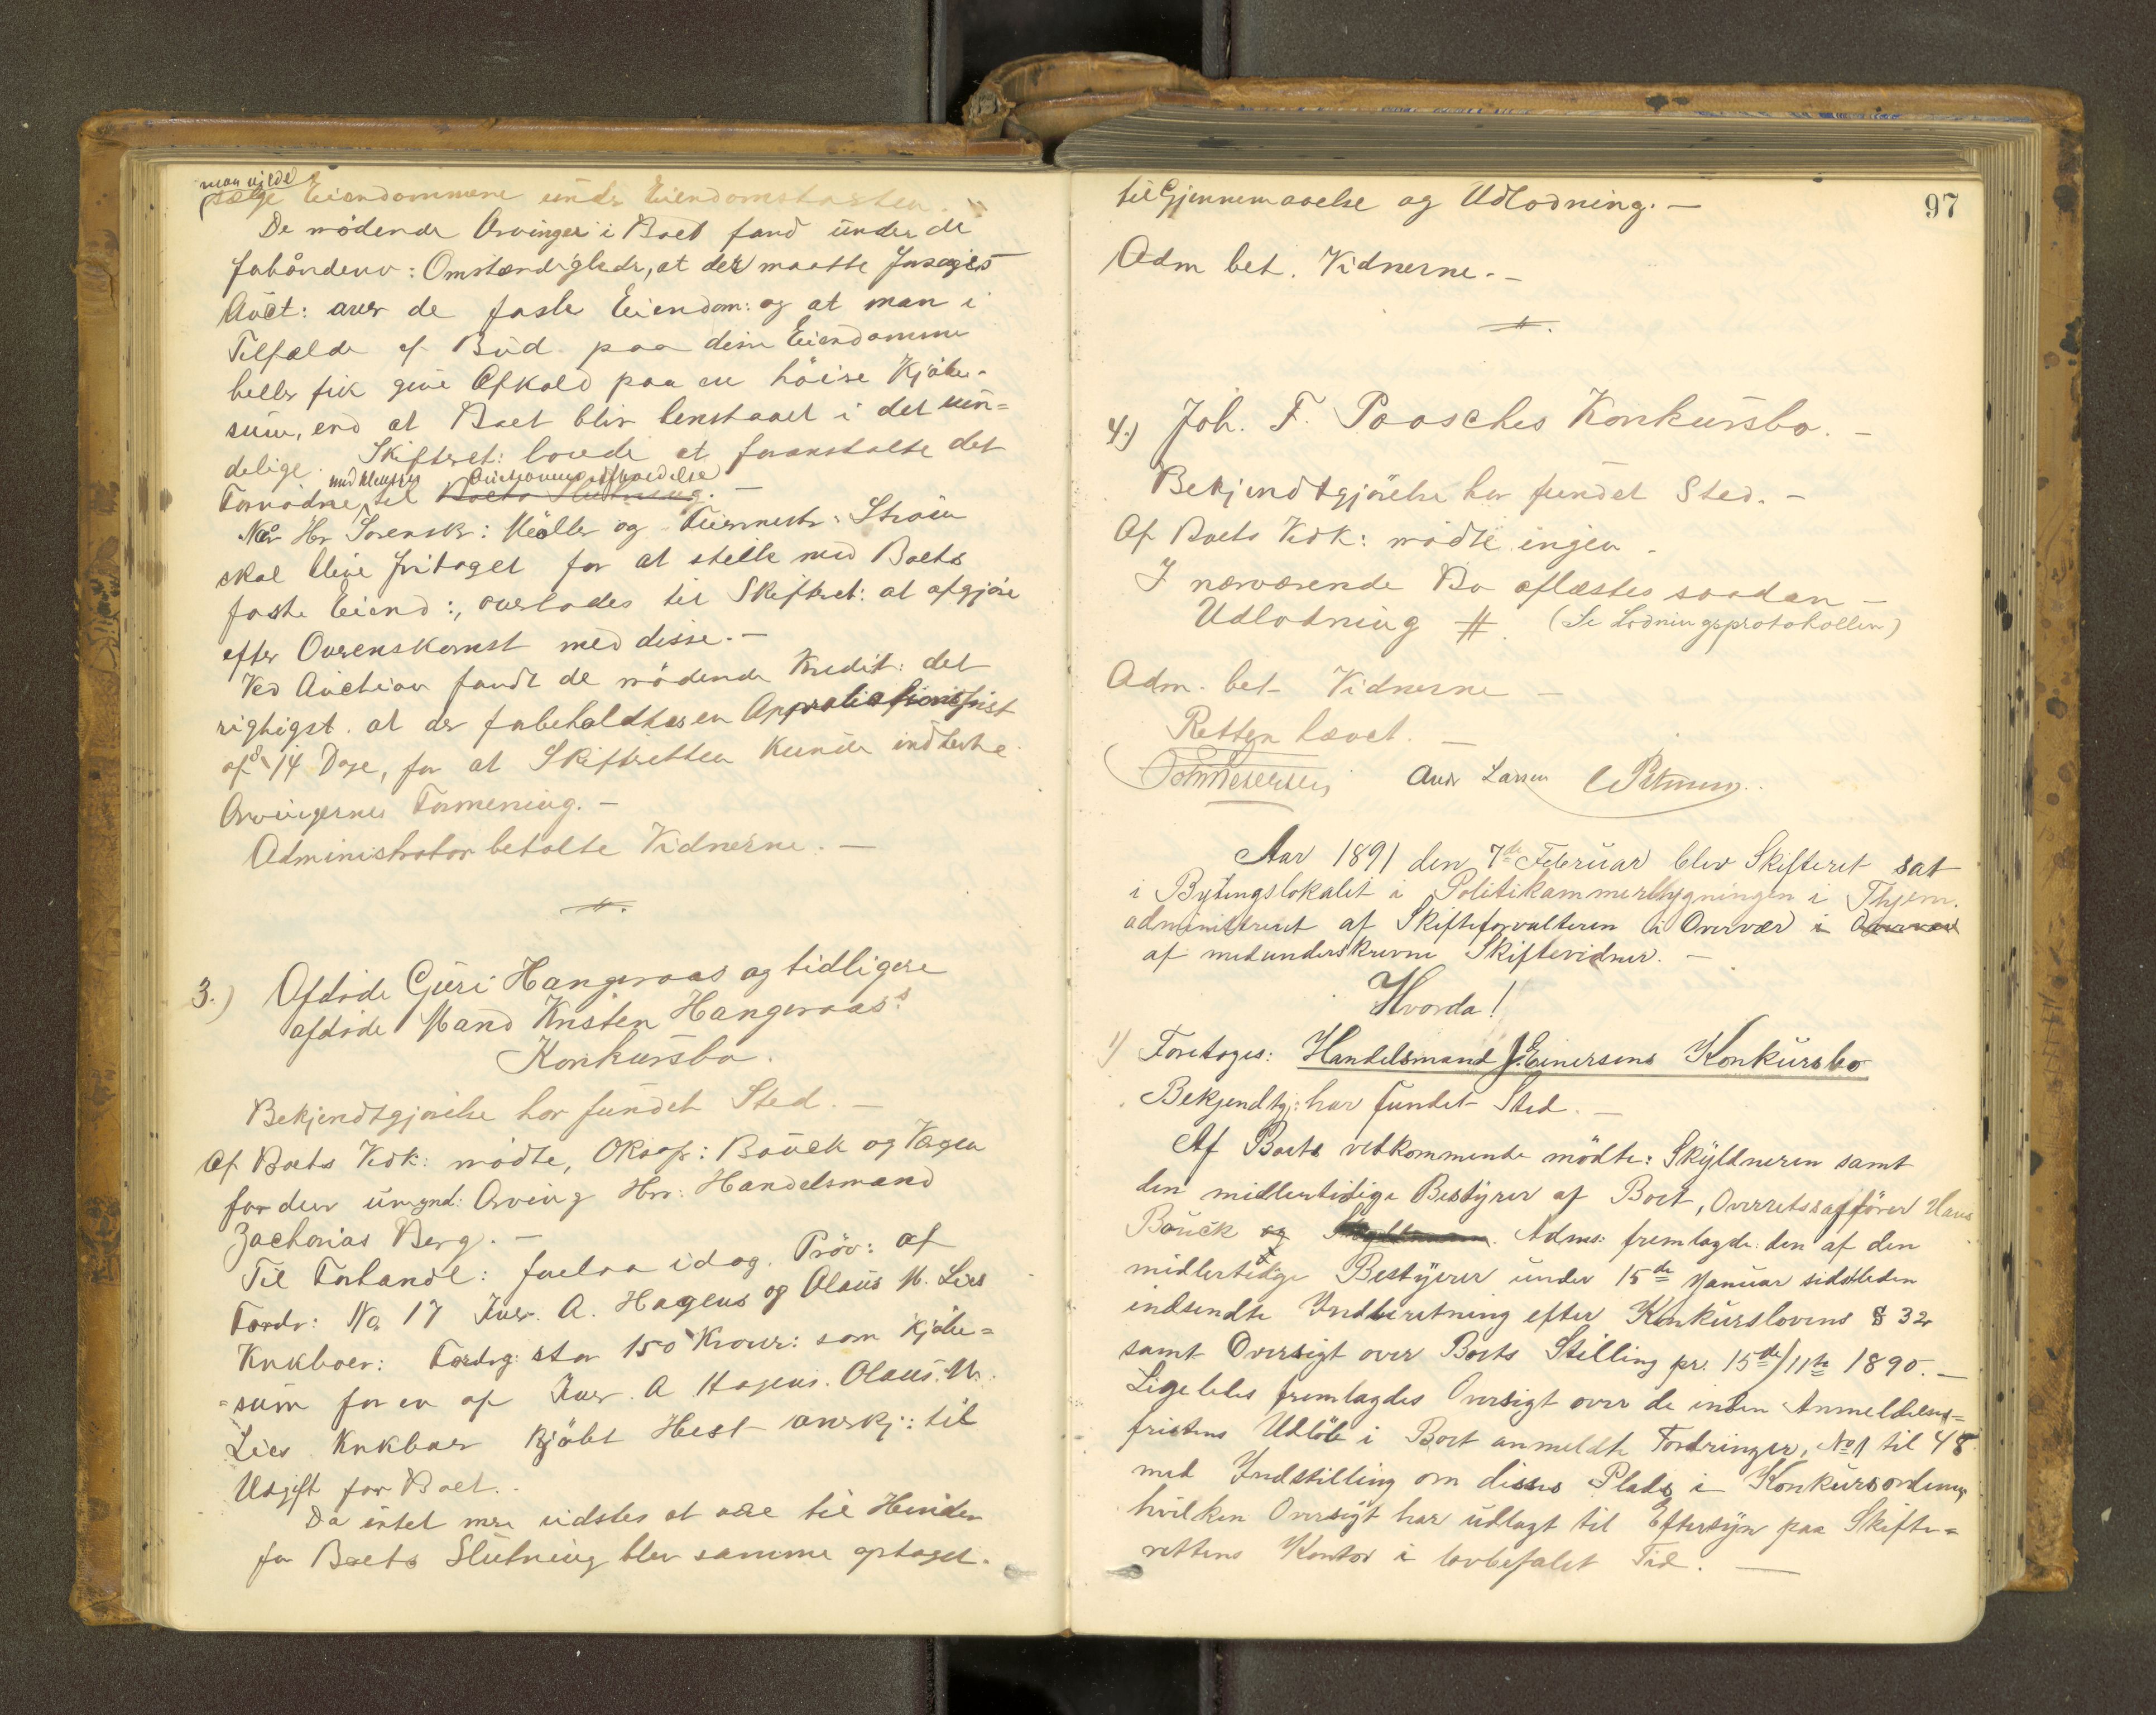 man vilde
sælge Eiendommene under Eiendomstaxten.
De mödende Arvinger i Boet fand under de
forhåndenv: Omstændigheder, at der maatte
Auct: over de faste Eiendom: og at man i
Tilfælde af Bud paa disse Eiendomme
heller fik give Afkald paa en höiere Kjöbe-
sum, end at Boet blir henstaaet i det uen-
delige. Skifteret: lovede at foranstalte det
med Hensyn Auctionens Afholdelse
Fornödne til Boets Slutning. —
Når Hr Sorenskr: Möller og
skal blive fritaget for at stelle med Boets
faste Eiend:, overlodes til Skifteret: at afgjöre
efter Overenskomst med disse. —
Ved Auction fandt de mödende Kredit: det
rigtigst at der forbeholdtes en Approbationsfrist
af 8 14 Dage, for at Skifteretten kunde indhente
Arvingernes Formening. —
Administrator betalte Vidnerne. —
3.) Afdöde Guri Hangeraas og tidligere
afdöde Mand Kristen Hangeraas's
Konkursbo.
Bekjendtgjörelse har fundet Sted. —
Af Boets Vedk: mödte, ORsagf: Bauck og Værgen
for den umynd: Arving Hrr: Handelsmand
Zacharias Berg. —
Til Forhandl: forelaa idag Pröv: af
Fordr: No 17 Iver A. Hagens og Olaus M. Lies
Enkboer: Fordrg: stor 150 Kroner: som Kjöbe=
=sum for en af Iver A Hagens. Olaus M.
Lies Enkboer Kjöbt Hest anerkj: til
Udgift for Boet.
Da intet mere vidstes at være til Hinder
for Boets Slutning blev samme optaget.
97
til Gjennemgaaelse og Udlodning. —
Adm bet. Vidnerne. —
4.) Joh. F. Paasches Konkursbo. —
Bekjendtgjörelse har fundet Sted. —
Af Boets Vedk: mödte ingen.
I nærværende Bo aflæstes saadan —
Udlodning #. (Se Lodningsprotokollen)
Adm. bet. Vidnerne —
Retten hævet. —
Andr Larsen
Aar 1891 den 7de Februar blev Skifteret sat
i Bytingslokalet i Politikammerbygningen i Thjem.
administreret af Skifteforvalteren i Overvær i Overvær
af medunderskrevne Skiftevidner. —
Hvorda!
1) Foretoges: Handelsmand J. Einersens Konkursbo
Bekjendtgj: har fundet Sted. —
Af Boets vedkommende mödte: Skyldneren samt
den midlertidige Bestyrer af Boet, Overretssagförer Hans
Bauck og Skyldneren. Adms: fremlagde den af den
midlertidige Bestyrer under 15de Januar sidstleden
indsendte Indberetning efter Konkurslovens § 32
samt Oversigt over Boets Stilling pr. 15de/11te 1890. —
Ligeledes fremlagdes Oversigt over de inden Anmeldelses=
fristens Udlöb i Boet anmeldte Fordringer, No 1 til 48
med Indstilling om disses Plads i Konkursordenen
hvilken Oversigt har udlagt til Eftersyn paa Skifte=
rettens Kontor i lovbefalet Tid. —